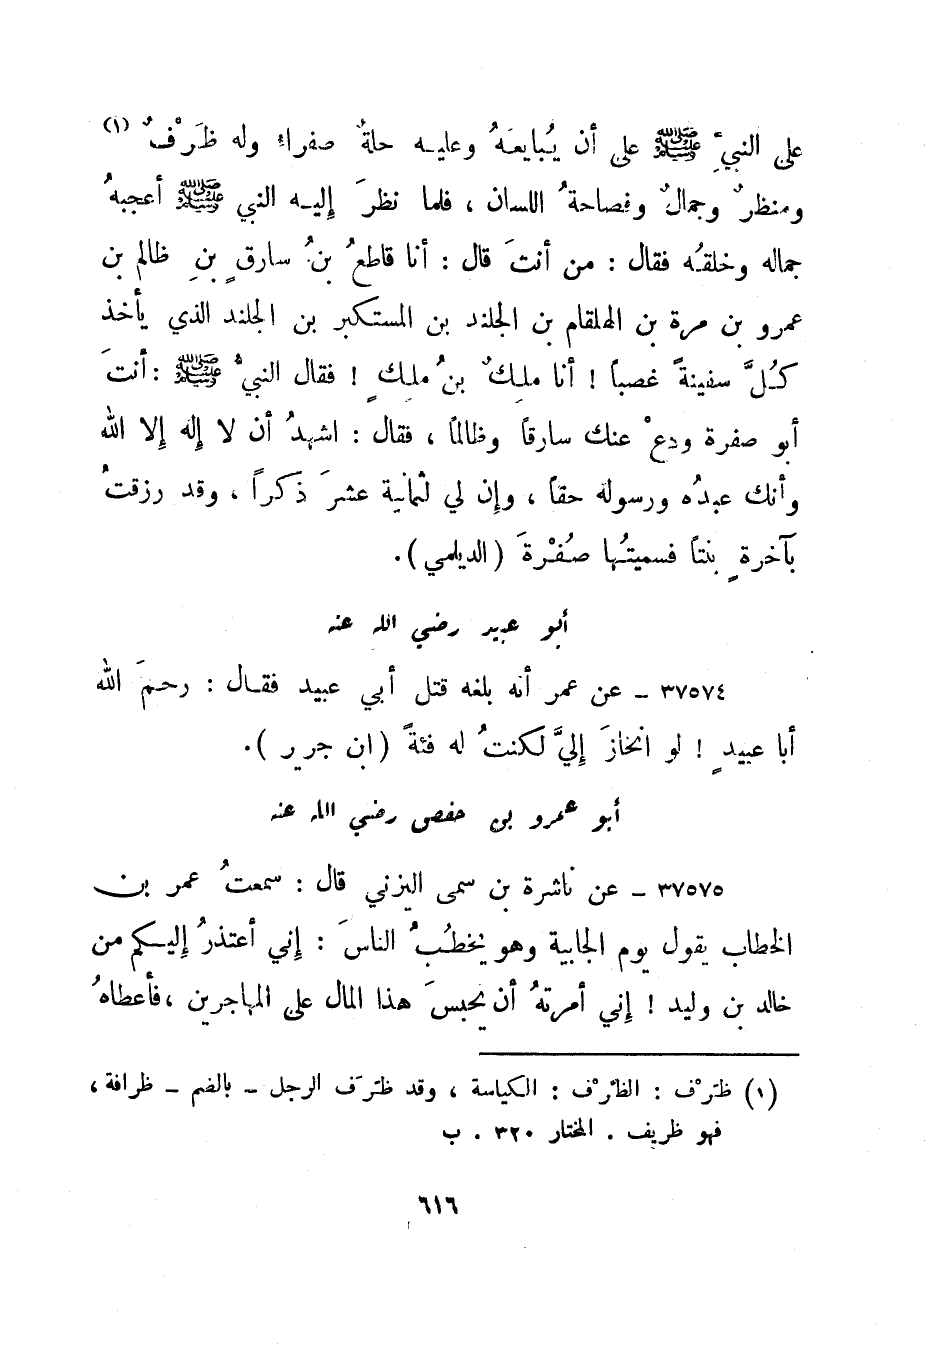 على النبيِّ ﷺ على أن يُبايعَهُ وعليه حلةٌ صفراءُ وله ظَرْفٌ (١)
ومنظرٌ وجمالٌ وفصاحةُ اللسان ، فلما نظرَ إليه النبي ﷺ أعجبهُ
جماله وخلقُه فقال : من أنتَ قال : أنا قاطعُ بنُ سارقٍ بنِ ظالم بن
عمرو بن مرة بن الهلقام بن الجلند بن المستكبر بن الجلند الذي يأخذ
كُلَّ سفينةً غصباً ! أنا ملكٌ بنُ ملكٍ ! فقال النبيُّ ﷺ : أنتَ
أبو صفرة ودعْ عنك سارقاً وظالماً ، فقال : اشهدُ أن لا إله إلا الله
وأنك عبدُه ورسوله حقاً ، وإن لي لثمانية عشرَ ذكراً ، وقد رزقتُ
بآخرةٍ بنتاً فسميتُها صُفْرةَ (الديلمي).
أبو عبيد رضي الله عنه
٣٧٥٧٤ - عن عمر أنه بلغه قتل أبي عبيد فقال : رحمَ الله
أبا عبيدٍ ! لو انحازَ إليَّ لكنتُ له فئةً (ابن جرير ).
أبو عمرو بن حفص رضي الله عنه
٣٧٥٧٥ - عن ناشرة بن سمى اليزني قال : سمعتُ عمر بن
الخطاب يقول يوم الجابية وهو يخطُبُ الناسَ : إني أعتذرُ إليكم من
خالد بن وليد ! إني أمرتهُ أن يحبسَ هذا المال على المهاجرين ، فأعطاهُ
(١) ظَرْف : الظَرْف : الكياسة ، وقد ظَرَف الرجل - بالضم - ظرافة ،
فهو ظريف . المختار ٣٢٠ . ب
٦١٦